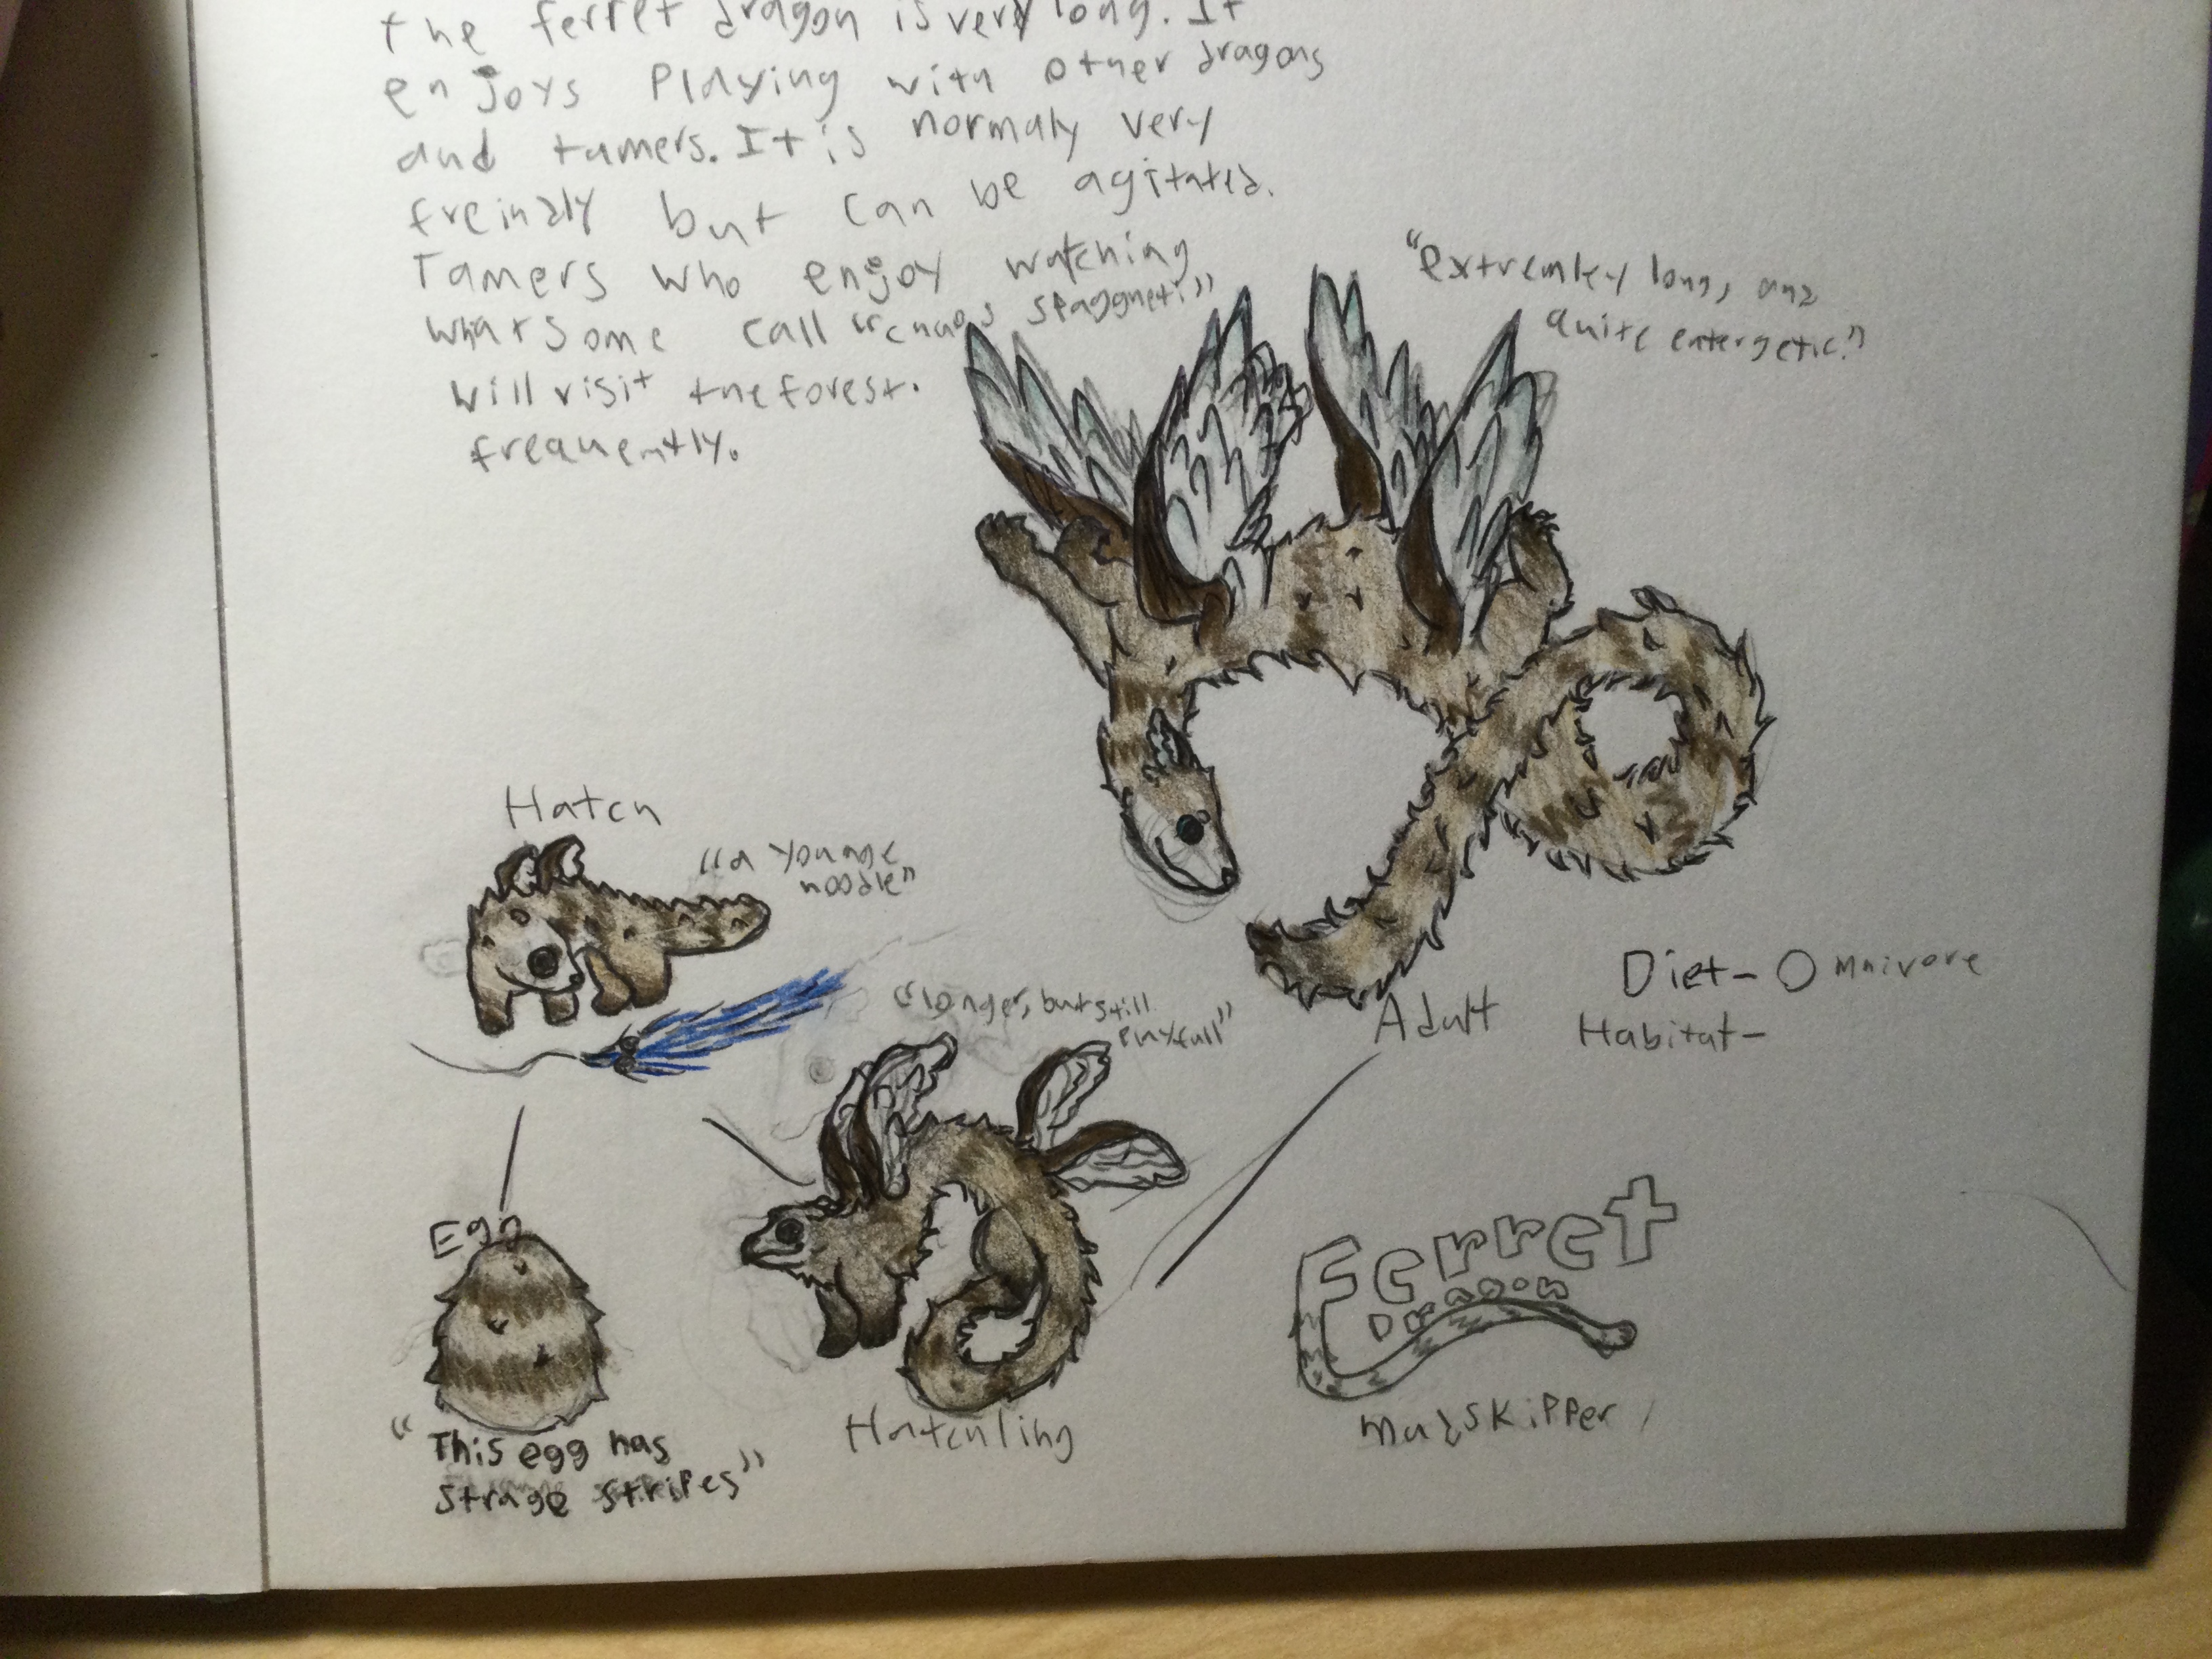 the ferret dragon is very long. It
enjoys Playing with other dragons
and tamers. It is normaly very
freindly but can be agitated.
Tamers who enjoy watching
what some call "chaos spaggneti"
will visit the forest.
frequently.
"extremley long, and
quite entergetic."
Hatch
"a younge
noodle"
"longer, but still
playfull"
Adult
Diet- Omnivore
Habitat-
Egg
"This egg has
strage stripes"
Hatchling
Ferret
Dragon
Mudskipper